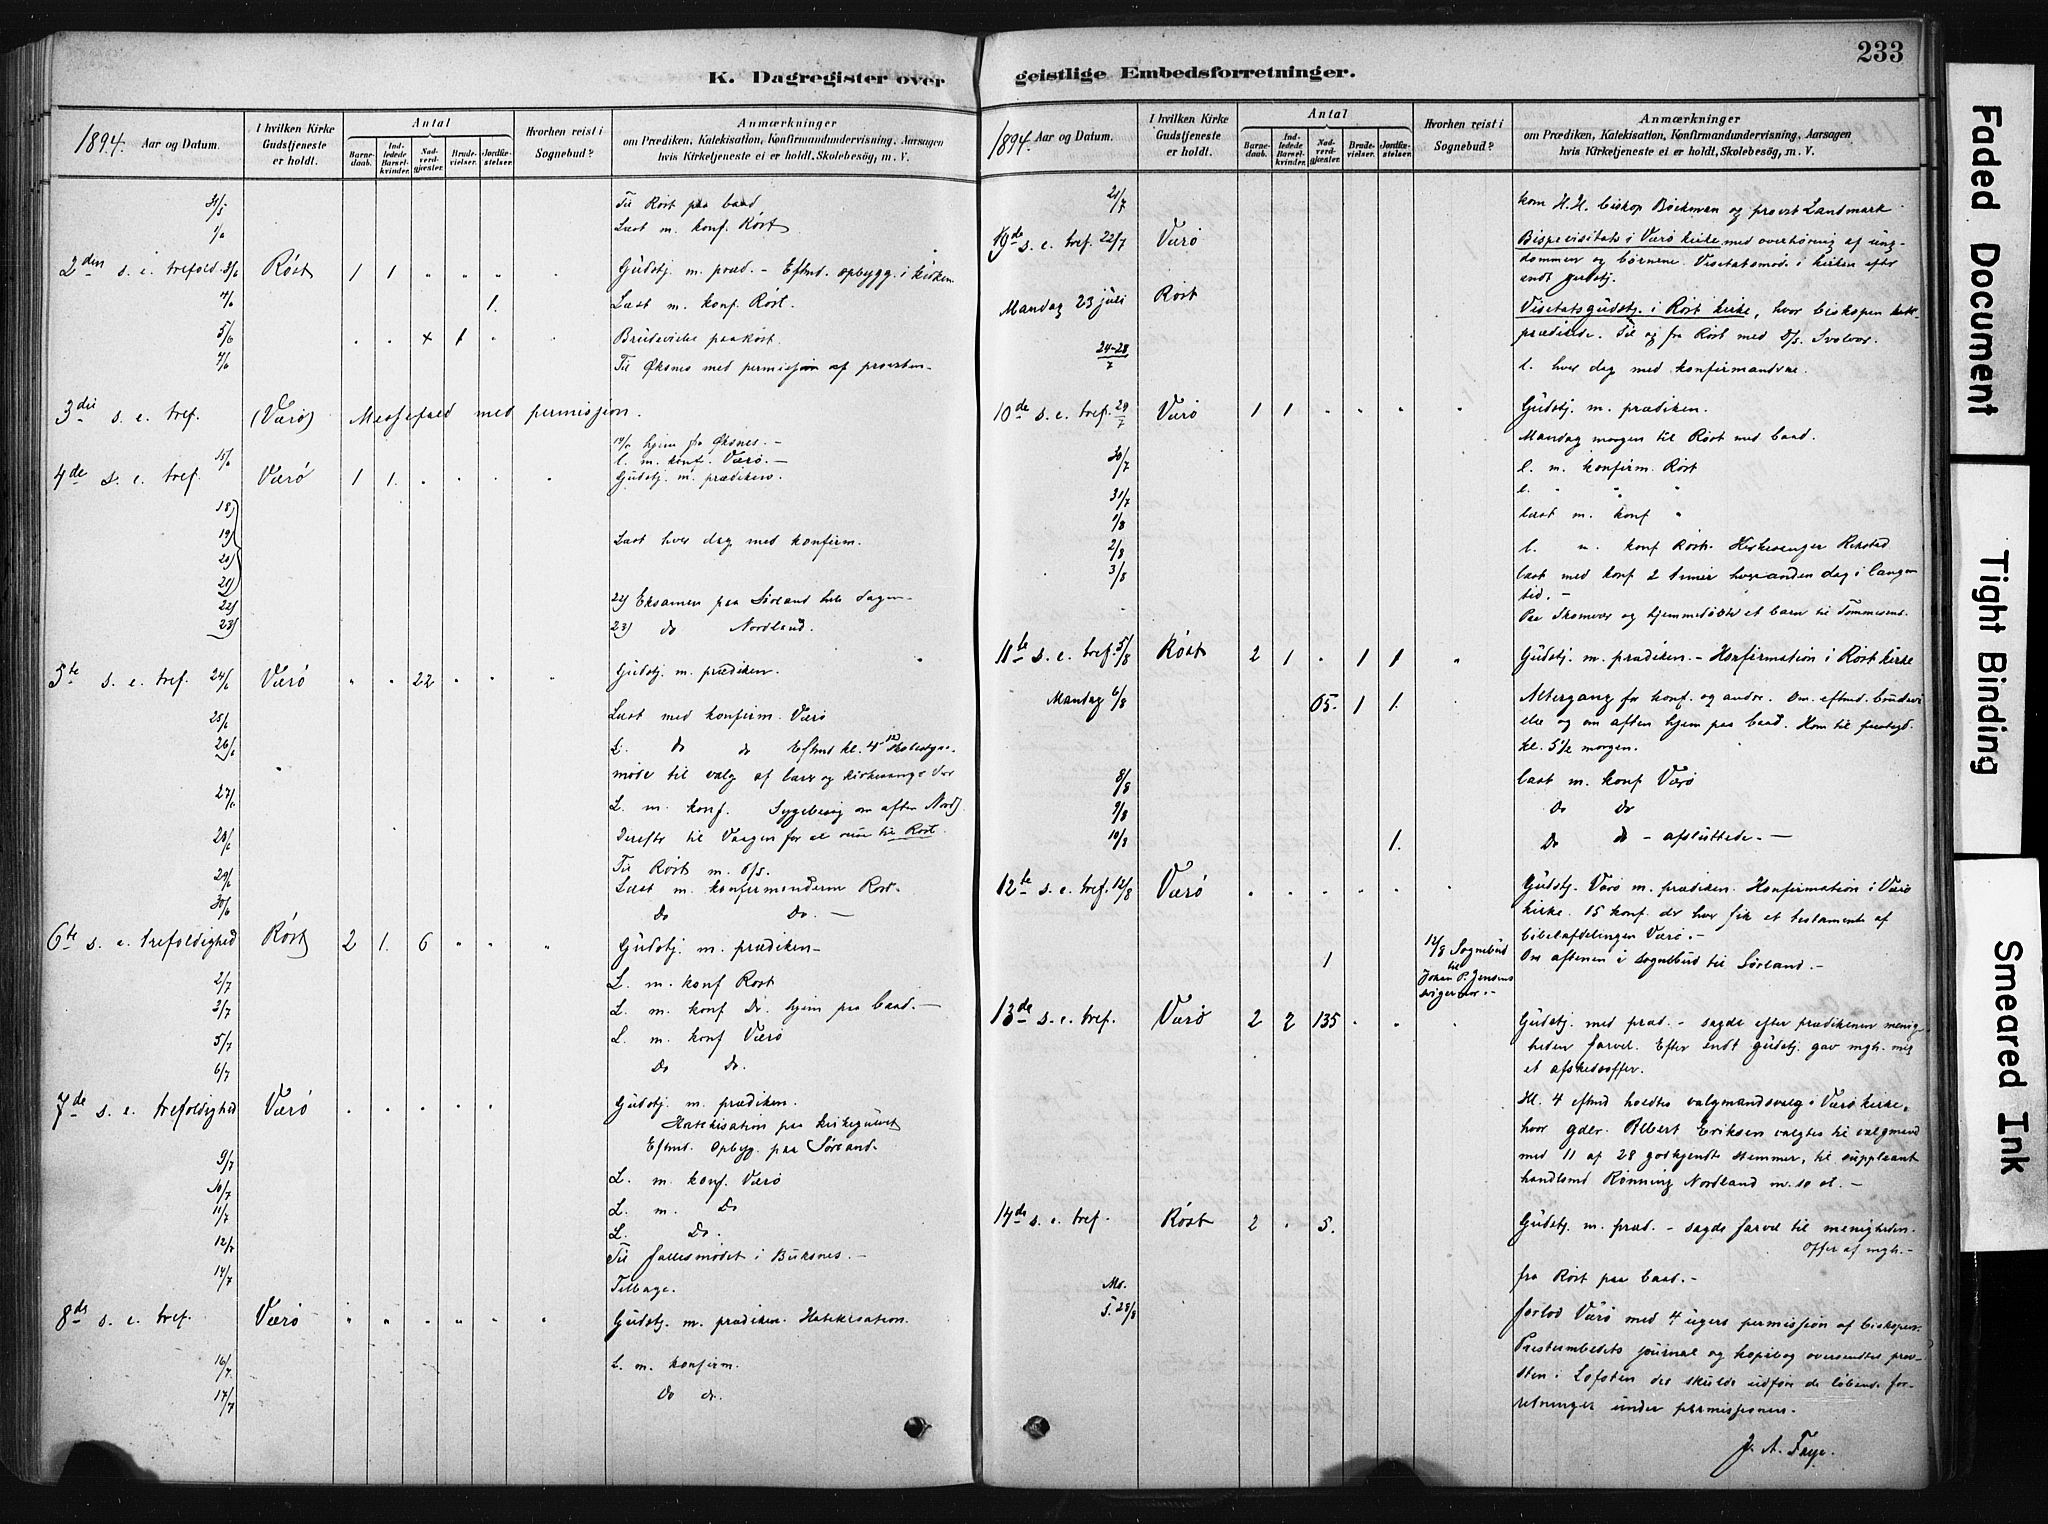 K. Dagregister over
1894. Aar og Datum.
I hvilken Kirke Gudstjeneste er holdt.
Antal
Barnedaab.
Indledede Barselkvinder.
Nadverdgjæster.
Brudevielser.
Jordfæstelser.
Hvorhen reist i Sognebud?
Anmærkninger
om Prædiken, Katekisation, Konfirmandundervisning, Aarsagen
hvis Kirketjeneste ei er holdt, Skolebesög, m. V.
31/5 Til Røst paa baad
1/6 Læst m. konf. Røst
2den s. e. trefold. 3/6 Røst 1 1 " " " " Gudstj. m. præd. - Eftmd. opbygg. i kirken
4/6 1. Læst m. konf. Røst.
5/6 Brudevielse paa Røst.
7/6 Til Øksnes med permission af provsten
3die s. e. tref. (Værø) Messefald med permission.
14/6 hjem fra Øksnes. -
15/6 l. m. konf. Værø. -
4de s. e. tref. Værø 1 1. Gudstj. m. prædiken
18)
19) Læst hver dag med konfirm.
20)
21)
22) 22) Eksamen paa Sørland
23) 23) do Nordland.
5te s. e. tref. 24/6 Værø " " 22 " " " Gudstj. m. prædiken.
25/6 Læst med konfirm. Værø
26/6 L. do do Eftmd kl. 4
møde til valg af lærer og kirkesanger
27/6 L. m. konf. Sygebesøg om aften Nordl.
28/6 Derefter til Vaagen for at reise til Røst.
Til Røst m. D/S.
29/6 Læst m. konfirmanderne Røst.
30/6 Do Do. -
6te s. e. trefoldighed Røst 2 1. 6 " " " Gudstj. m. prædiken -
2/7 L. m. konf Røst
3/7 L. m. konf Do. hjem paa baad. -
5/7 L. m. konf Værø
6/7 Do Do.
7de s. e. trefoldighed Værø Gudstj. m. prædiken.
Katekisation paa kirkegulvet
Eftmd. opbyg. paa Sørland.
9/7 L. m. konf. Værø
10/7 L. m. Do
11/7 L. Do.
12/7 Til fællesmødet i Buksnes. -
14/7 Tilbage.
8de s. e. tref. Værø " " " " " " Gudstj. m. prædiken. Katekisation.
16/7 L. m. konfirm.
17/7 Do do.
geistlige Embedsforretninger.
233
1894. Aar og Datum.
I hvilken Kirke Gudstjeneste er holdt.
Antal
Barnedaab.
Indledede Barselkvinder.
Nadverdgjæster.
Brudevielser.
Jordfæstelser.
Hvorhen reist i Sognebud?
Anmærkninger
om Prædiken, Katekisation, Konfirmandundervisning, Aarsagen
hvis Kirketjeneste ei er holdt, Skolebesög, m. V.
21/7 kom H.H. biskop Bøckman og provst Landmark
9de s. e. tref. 22/7 Værø Bispevisitats i Værø kirke med overhøring af ung-
dommen og børnene. Visitatsmøde i kirken efter
endt gudstj.
Mandag 23 juli Røst Visitatsgudstj. i Røst kirke, hvor biskopen
prædikede. Til og fra Røst med D/S. Svolvær.
24-28/7 l. hver dag med konfirmanderne.
10de s. e. tref. 29/7 Værø 1 1 " " " " Gudstj. m. prædiken.
Mandag morgen til Røst med baad.
30/7 l. m. konfirm. Røst
31/7 l. " " "
1/8 læst m. konf "
2/8 l. m. konf Røst. Kirkesanger Rikstad
3/8 læst med konf 2 timer hver anden dag i længere
tid. -
Paa Skomvær og hjemmedøbte et barn til Tømmesens.
11te s. e. tref. 5/8 Røst 2 1 " 1 1 " Gudstj. m. prædiken. - Konfirmation i Røst kirke
Mandag 6/8 65. 1 1. Altergang for konf. og andre. Om eftmd. brudevi-
else og om aften hjem paa baad. Kom til prestegd.
kl. 5 1/2 morgen.
8/8 læst m. konf Værø
9/8 Do Do
10/8 1. Do do - afsluttede. -
12te s. e. tref. 12/8 Værø Gudstj. Værø m. prædiken. Konfirmation i Værø
kirke. 15 konf. der hver fik et testamente af
bibelafdelingen Værø. -
1 12/8 Sognebud til Johan P. Jensens svigermor. - Om aftenen i sognebud til Sørland. -
13de s. e. tref. Værø 2 2 135 Gudstj. med præd. - sagde efter prædikenen menig-
heden farvel. Efter endt gudstj. gav mgh. mig
et afskedsoffer.
Kl. 4 eftmd holdtes valgmandsvalg i Værø kirke,
hvor gdbr. Albert Eriksen valgtes til valgmand
med 11 af 28 godkjendte stemmer, til suppleant
handlsmd Rønning Nordland m. 10 st. -
14de s. e. tref. Røst 2 " 5. Gudstj. m. præd. - sagde farvel til menigheden.
Offer af mgh. -
Ma. fra Røst paa baad. -
T. 28/8 forlod Værø med 4 ugers permission af biskopen.
Presteembedets journal og kopibog oversendtes prov-
sten i Lofoten der skulde udføre de løbende for-
retninger under permissionen.
J. A. Frye.
Faded Document
Tight Binding
Smeared Ink